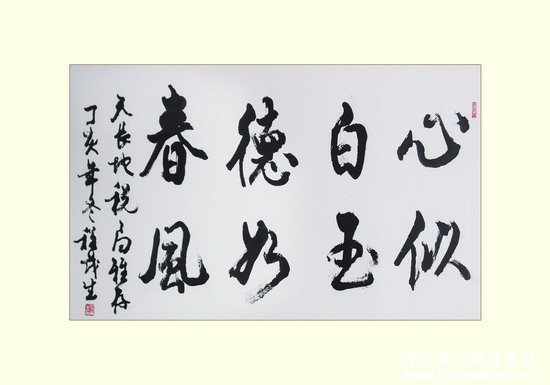 心似
白玉
德如
春風
天長地税局雅存
丁亥年冬程茂生